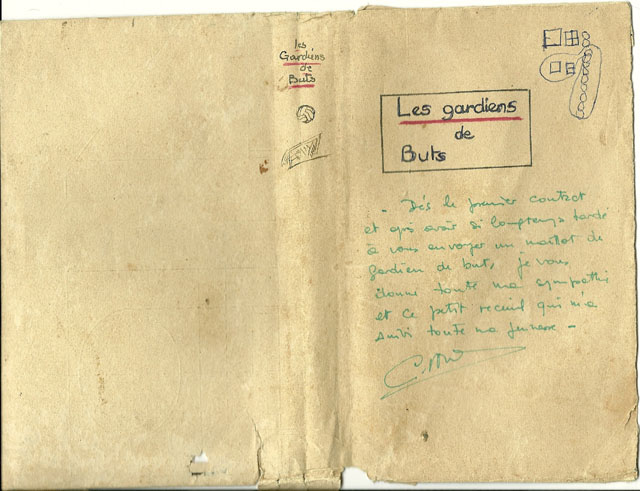 les
Gardiens
de
Buts
Les gardiens
de
Buts
- Dés le premier contact
et après avoir si longtemps tardé
à vous envoyer un maillot de
gardien de but, je vous
donne toute ma sympathie
et ce petit recueil qui m'a
suivi toute ma jeunesse -